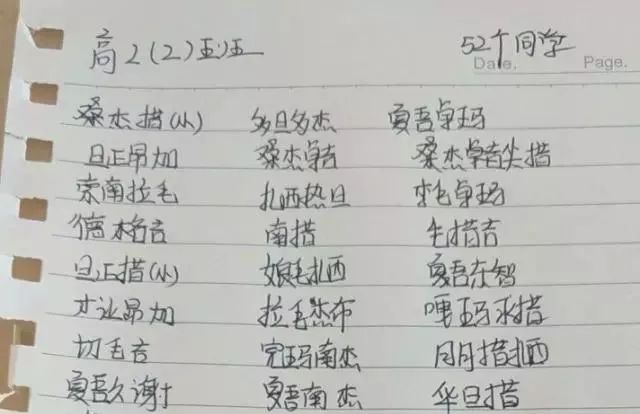 高2(2)班 52个同学
Date. Page.
桑杰措(小) 多旦多杰 夏吾卓玛
旦正昂加 桑杰卓吉 桑杰卓吉尖措
索南拉毛 扎西热旦 卓玛
德格吉 南措 措吉
旦正措(小) 娘毛扎西 夏吾东智
才让昂加 拉毛杰布 嘎玛求措
切毛吉 完玛南杰 月月措扎西
夏吾久谢 夏吾南杰 华旦措